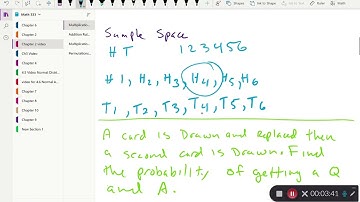 Math 333
Chapter 6
Chapter 2
Chapter 2 video
Ch5 Video
Chapter 4
Chapter 5
Chapter 7
Chapter 8
Chapter 9
Chapter 10
New Section 1
Multiplication
Addition Rule
Multiplication
Permutations
Sample Space
H T 1 2 3 4 5 6
H 1, H2, H3, H4, H5, H6
T1, T2, T3, T4, T5, T6
A card is Drawn and replaced then
a second card is Drawn. Find
the probability of getting a Q
and A.
00:03:41